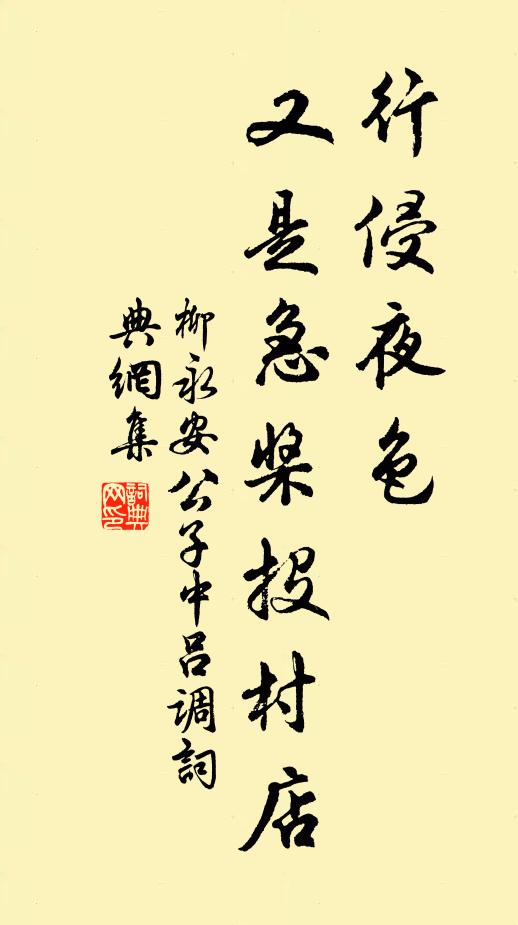 行侵夜色
又是急槳投村店
柳永安公子中吕調詞
典網集
詞典
网印